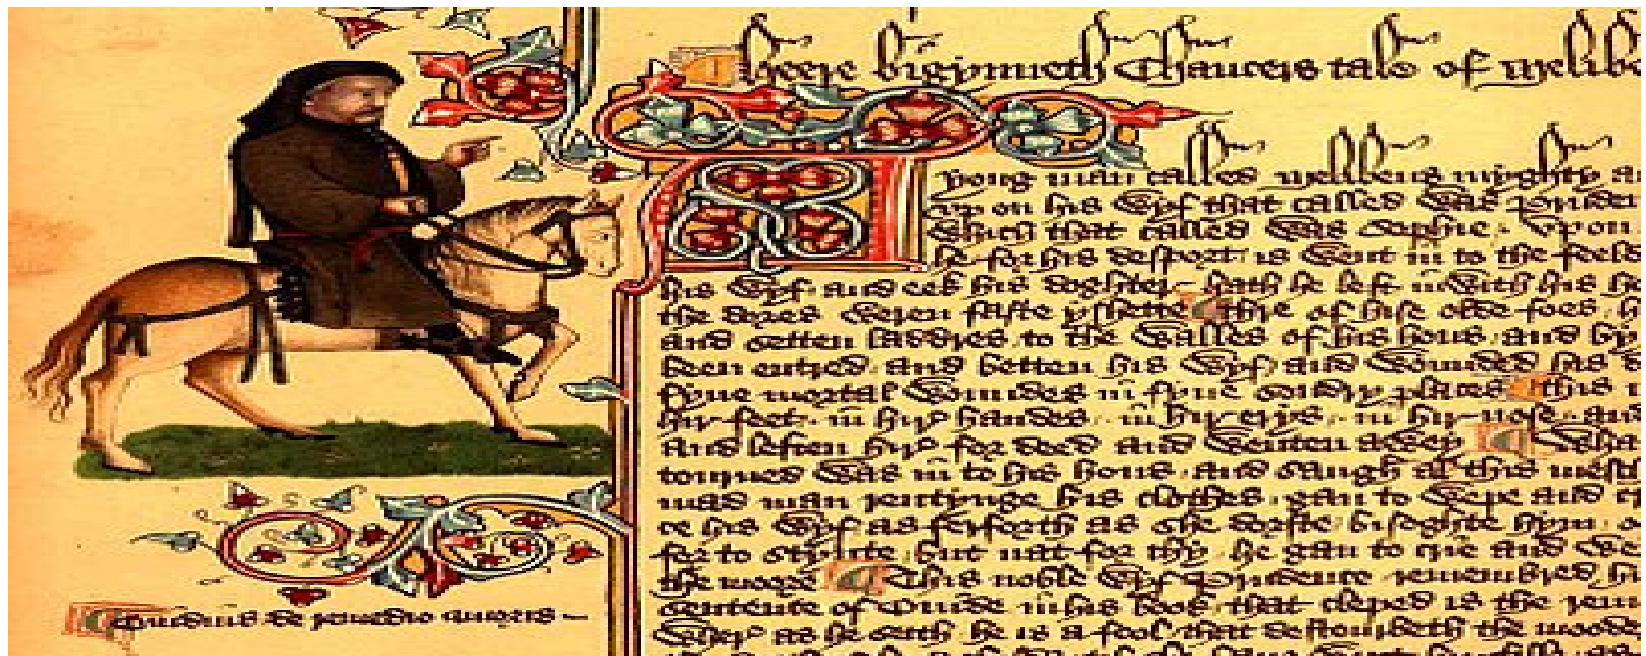 Heere bigynneth Chaucers tale of Melibe
A yong man called Melibeus myghty
vp on his wyf that called was
which that called was Sophie . Vpon
he for his desport is went in to the feeld
his wyf and eek his doghter hath he left inwith his
the dores weren faste yshette / thre of hise olde foes .
and setten laddres to the walles of his hous and by
been entred . and betten his wyf and wounded his
fyue mortal woundes in fyue sondry places / this
hir feet . in hir handes . in hir erys . in hir nose . and
And leften hir for deed and wenten awey Wha
torned was in to his hous . and saugh al this mesch
mad man rentynge his clothes . gan to wepe and
ce his wyf as ferforth as she dorste . bisoghte hym .
for to stynte . but nat for thy . he gan to crie and we
the moore This noble wyf Prudence . remembred
sentence of Ouide in his book . that cleped is the rem
Wher as he seith he is a fool that destourbeth the moode
Ouidius de remedio amoris